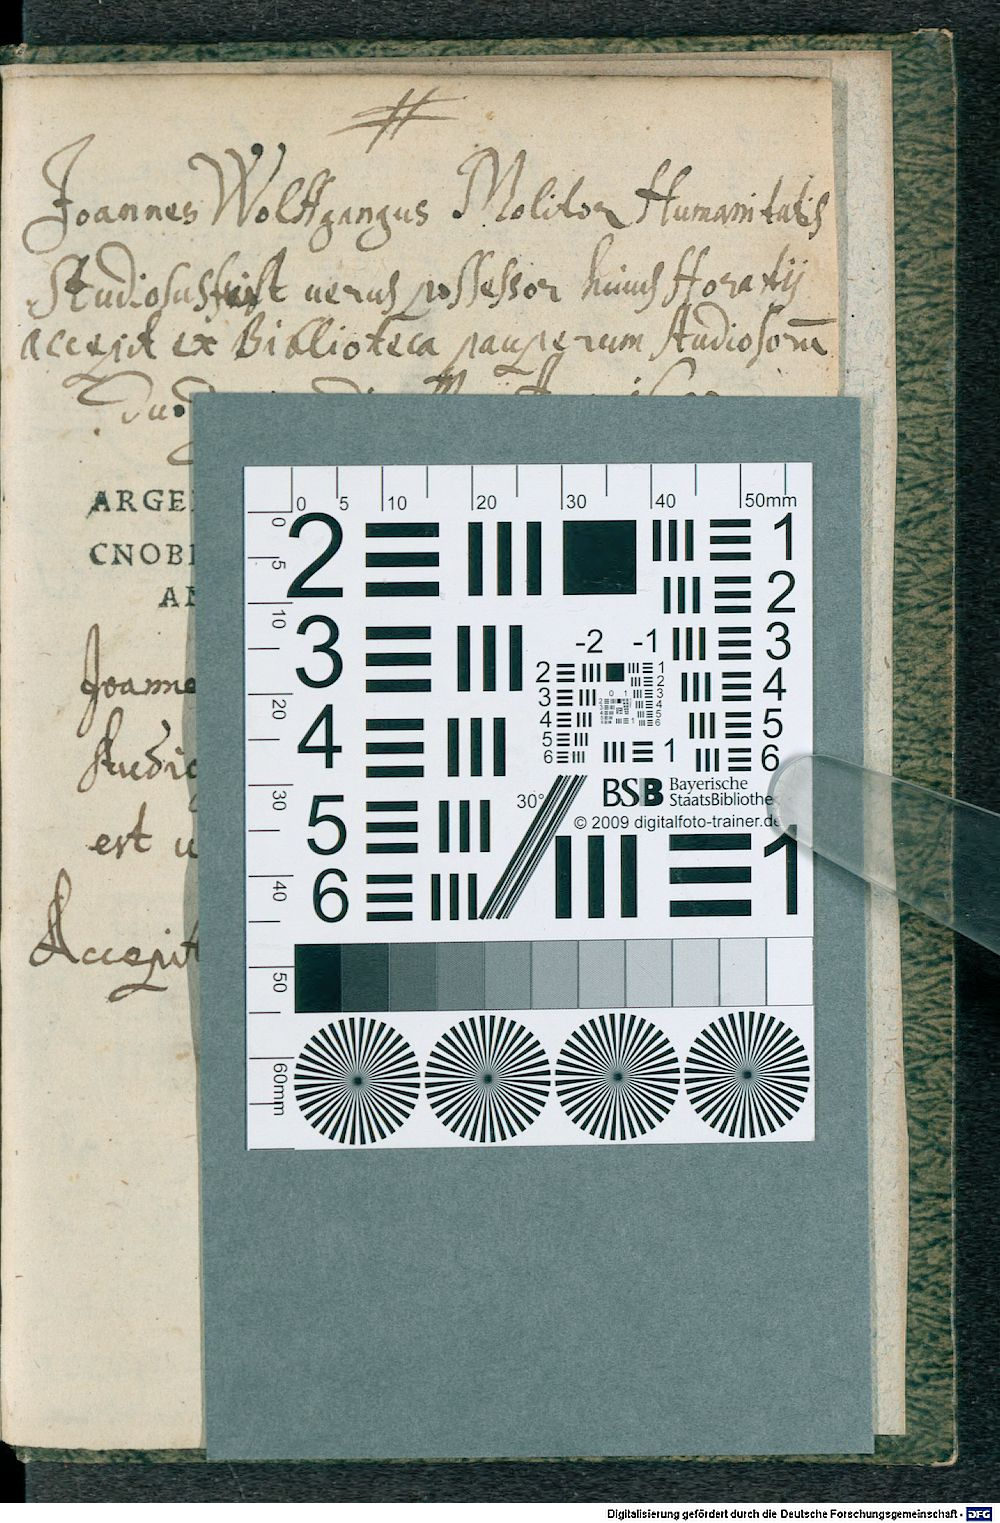 Joannes Wolffgangus Molitor Humanitatis
Studiosus uerus possessor huius Horatij
accepit ex Bibliotheca pauperum studiosorū
ARGE
CNOB
Joanne
Studio
est u
Accepit
0 5 10 20 30 40 50mm
0 5 10 20 30 40 50 60mm
2 1
2
3 -2 -1 3
2 1
2
3 3
4 4
5 5
6 6
1
4 4
5
6
5
6
30°
BSB Bayerische
StaatsBibliothe
© 2009 digitalfoto-trainer.de
1
Digitalisierung gefördert durch die Deutsche Forschungsgemeinschaft - DFG